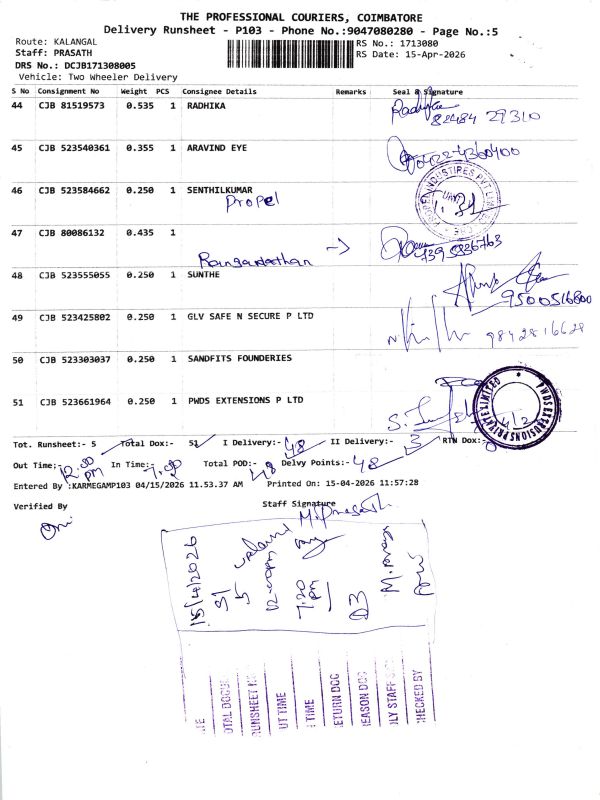 THE PROFESSIONAL COURIERS, COIMBATORE
Delivery Runsheet - P103 - Phone No.:9047080280 - Page No.:5
Route: KALANGAL
RS No.: 1713080
Staff: PRASATH
RS Date: 15-Apr-2026
DRS No.: DCJB171308005
Vehicle: Two Wheeler Delivery
S No Consignment No Weight PCS Consignee Details Remarks Seal & Signature
44 CJB 81519573 0.535 1 RADHIKA
82484 27310
45 CJB 523540361 0.355 1 ARAVIND EYE
0422-4360400
46 CJB 523584662 0.250 1 SENTHILKUMAR
Propel
47 CJB 80086132 0.435 1
48 CJB 523555055 0.250 1 SUNTHE
9500516800
49 CJB 523425802 0.250 1 GLV SAFE N SECURE P LTD
9842816628
50 CJB 523303037 0.250 1 SANDFITS FOUNDERIES
51 CJB 523661964 0.250 1 PWDS EXTENSIONS P LTD
PWDS EXTENSIONS PRIVATE LIMITED
Tot. Runsheet:- 5 Total Dox:- 51 I Delivery:- 48 II Delivery:- 3 RTN Dox:-
Out Time:- 12.00 pm In Time:- 7.00 Total POD:- 48 Delvy Points:- 48
Entered By :KARMEGAMP103 04/15/2026 11.53.37 AM Printed On: 15-04-2026 11:57:28
Verified By Staff Signature
M. Prasath
15/4/2026
51
5
12.00pm
7.30 pm
03
RUNSHEET
UT TIME
TIME
ETURN DOC
EASON DOC
LY STAFF S
HECKED BY